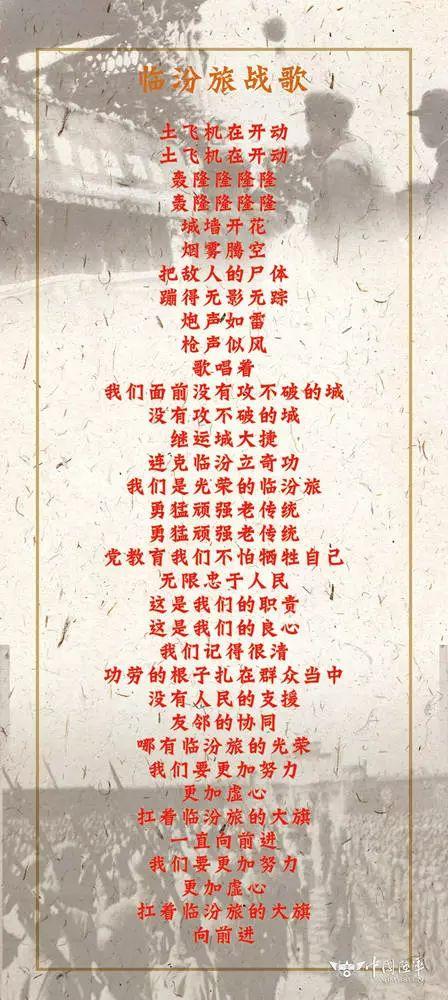 临汾旅战歌
土飞机在开动
土飞机在开动
轰隆隆隆隆
轰隆隆隆隆
城墙开花
烟雾腾空
把敌人的尸体
蹦得无影无踪
炮声如雷
枪声似风
歌唱着
我们面前没有攻不破的城
没有攻不破的城
继运城大捷
连克临汾立奇功
我们是光荣的临汾旅
勇猛顽强老传统
勇猛顽强老传统
党教育我们不怕牺牲自己
无限忠于人民
这是我们的职责
这是我们的良心
我们记得很清
功劳的根子扎在群众当中
没有人民的支援
友邻的协同
哪有临汾旅的光荣
我们要更加努力
更加虚心
扛着临汾旅的大旗
一直向前进
我们要更加努力
更加虚心
扛着临汾旅的大旗
向前进
中国陆军